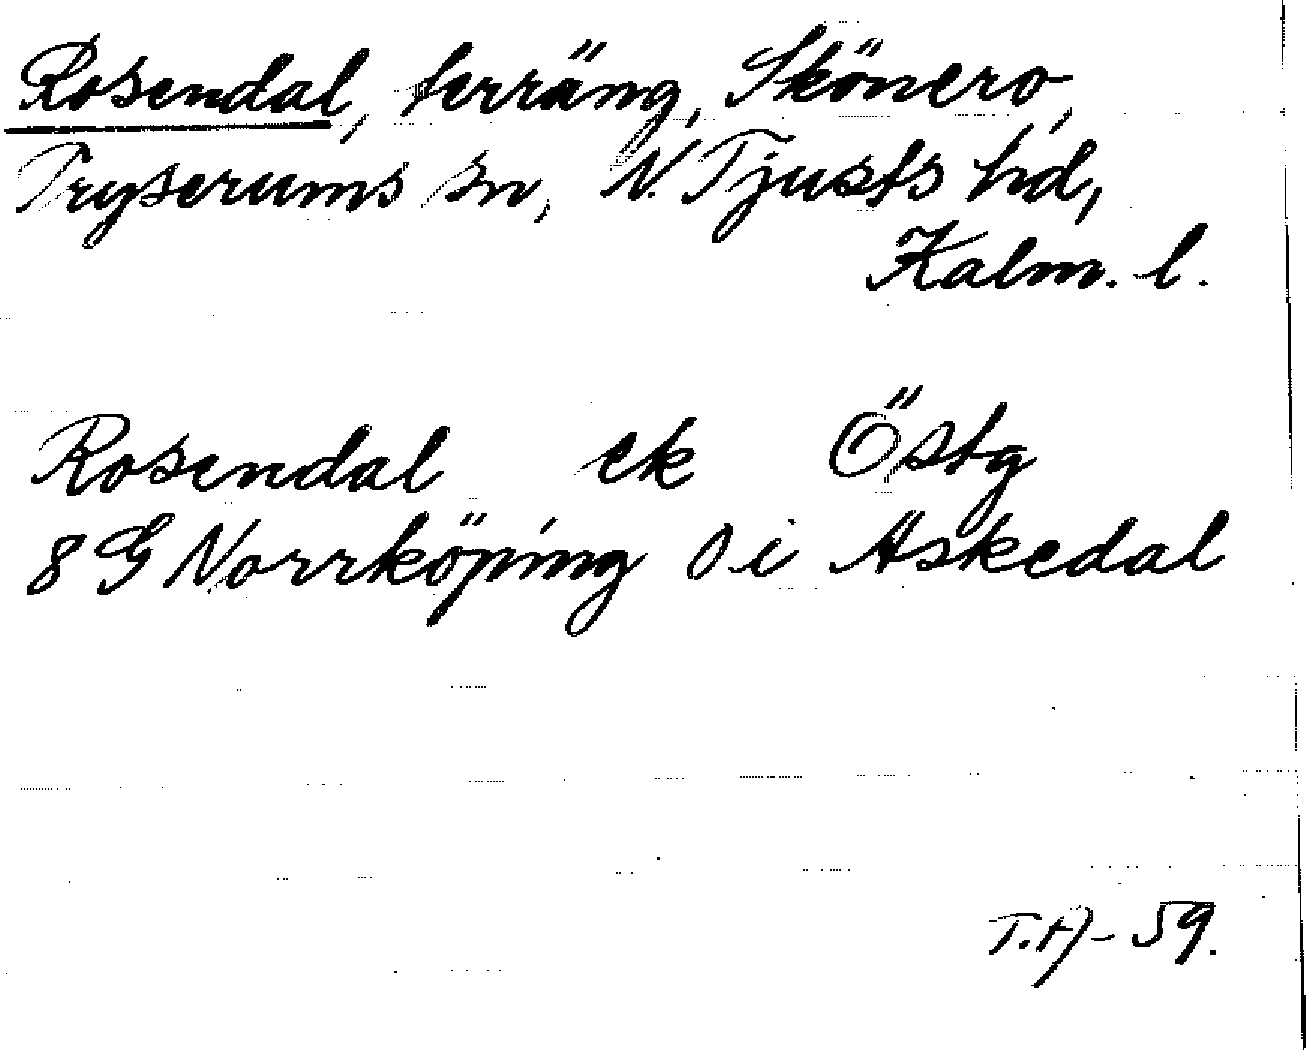 Rosendal, terräng, Skönero,
Tryserums sn, N. Tjusts hd,
Kalm. l.
Rosendal ek Östg
8 G Norrköping 0 i Äskedal
T.H - 59.